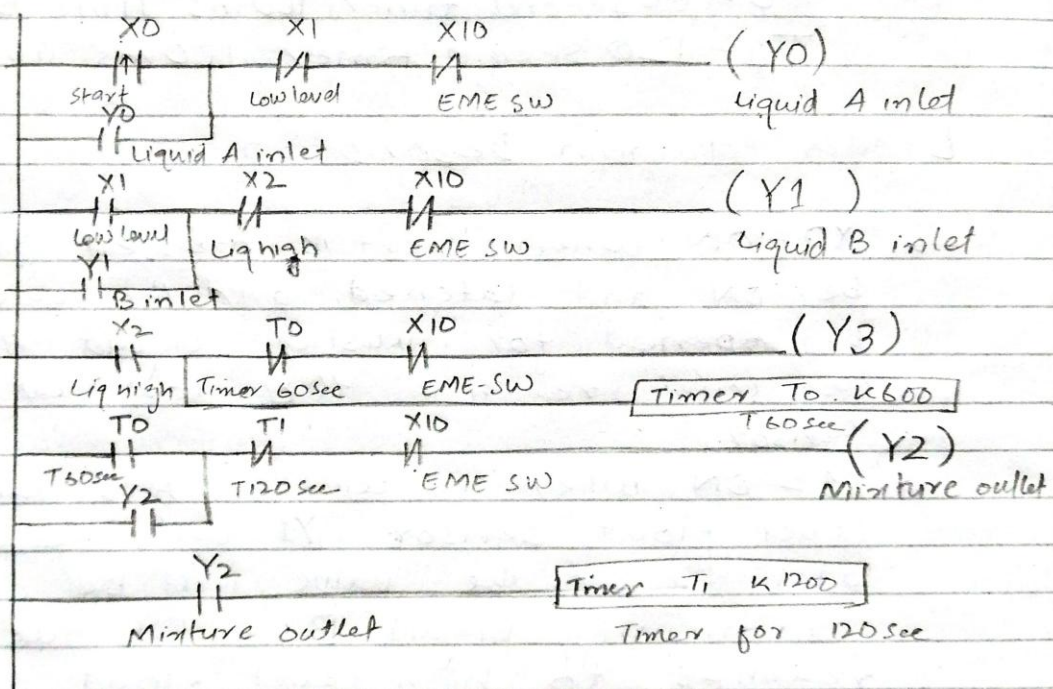 X0 X1 X10
( Y0 )
start Low level EME SW Liquid A inlet
Y0
Liquid A inlet
X1 X2 X10
( Y1 )
Low level Liq high EME SW Liquid B inlet
Y1
B inlet
X2 T0 X10
( Y3 )
Liq high Timer 60sec EME-SW Timer To K600
T 60 sec
T0 T1 X10
( Y2 )
T60sec T120 Sec EME SW Mixture outlet
Y2
Y2
Timer T1 K 1200
Mixture outlet Timer for 120 Sec